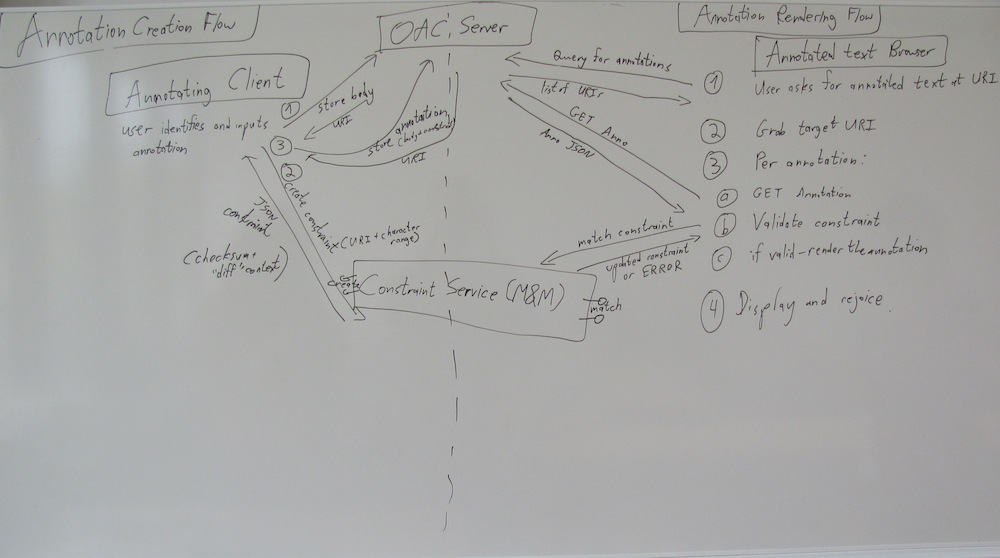 Annotation Creation Flow
OAC Server
Annotation Rendering Flow
Annotating Client
user identifies and inputs
annotation
1
store body
URI
3
store annotation
URI
2
create constraint
(URI + character
range)
JSON
constraint
(checksum +
"diff" context)
create
Constraint Service (M&M)
match
Query for annotations
list of URIs
GET Anno
Anno JSON
match constraint
updated constraint
or ERROR
Annotated text Browser
1 User asks for annotated text at URI
2 Grab target URI
3 Per annotation:
a GET Annotation
b Validate constraint
c if valid - render the annotation
4 Display and rejoice.